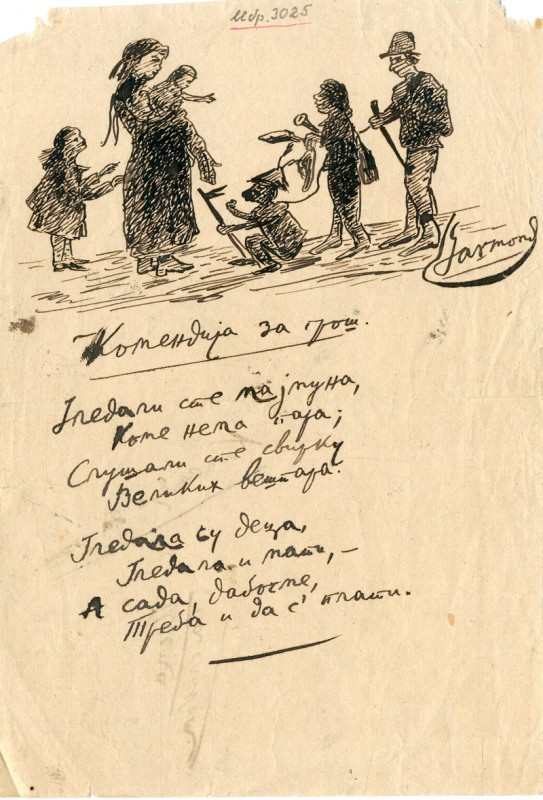 Ибр. 3025
Garmond
Комендија за грош.
Гледали сте мајмуна,
Коме нема пара;
Слушали сте свирку
Великих вештара.
Гледала су деца,
Гледала и мати, –
А сада, дабогме,
Треба и да с' плати.